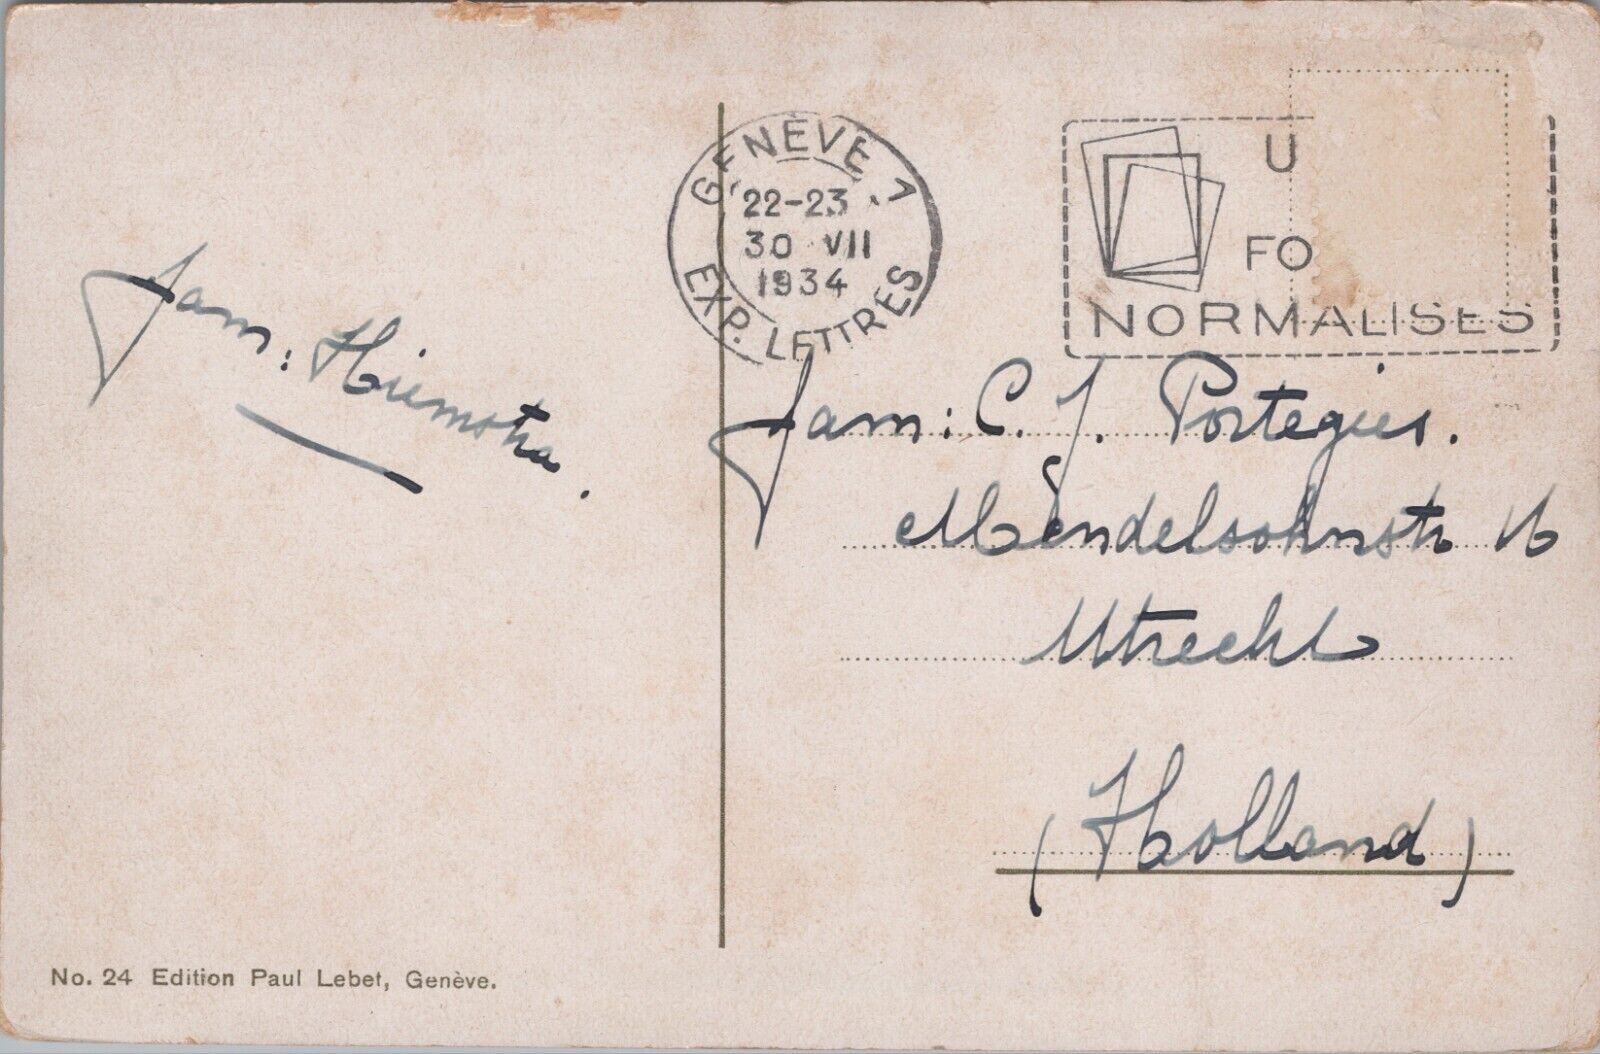 GENÈVE 1
22-23
30 VII
1934
EXP. LETTRES
U
FO
NORMALISES
Fam: Hiemstra.
Fam: C. J. Portegies.
Mendelsohnstr 16
Utrecht
(Holland)
No. 24 Edition Paul Lebet, Genève.